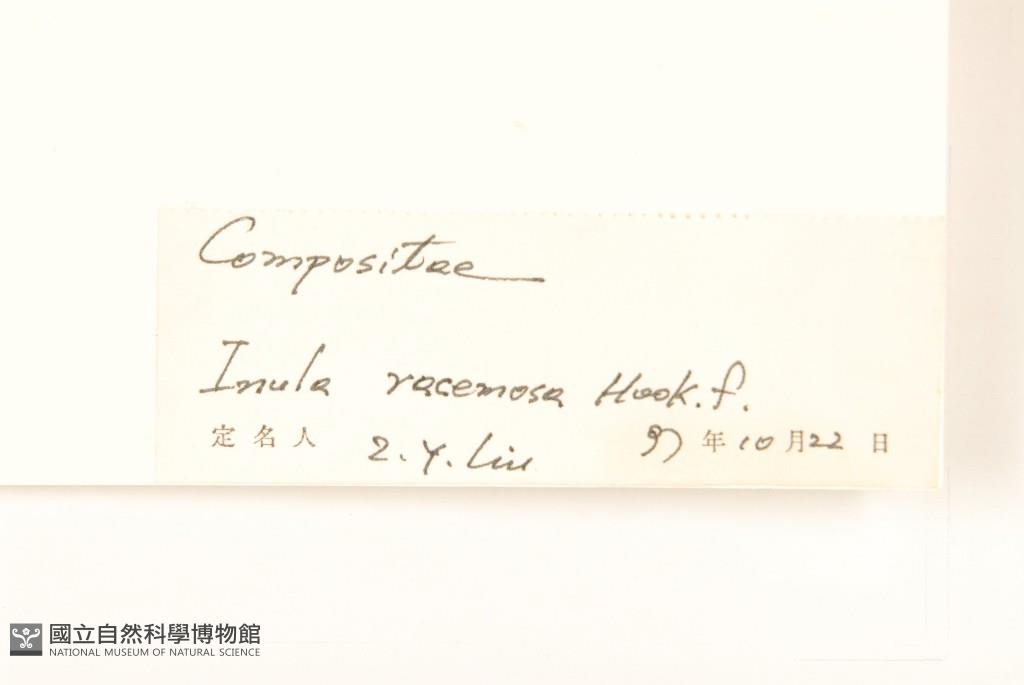 Compositae
Inula racemosa Hook.f.
定名人 Z.Y.Liu 97年10月22日
國立自然科學博物館
NATIONAL MUSEUM OF NATURAL SCIENCE